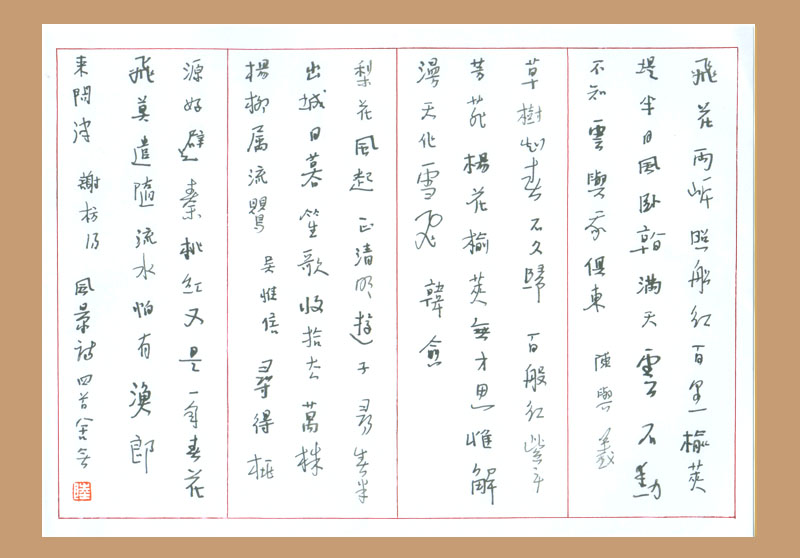 飛花兩岸照船紅百里榆莢
堤半日風臥看滿天雲不動
不知雲與我俱東 陳與義
草樹知春不久歸百般紅紫鬥
芳菲楊花榆莢無才思惟解
漫天作雪飛 韓愈
梨花風起正清明遊子尋春半
出城日暮笙歌收拾去萬株
楊柳属流鶯 吳惟信 尋得桃
源好避秦桃紅又是一年春花
飛莫遣隨流水怕有漁郎
來問津 謝枋得 風景詩四首
陸